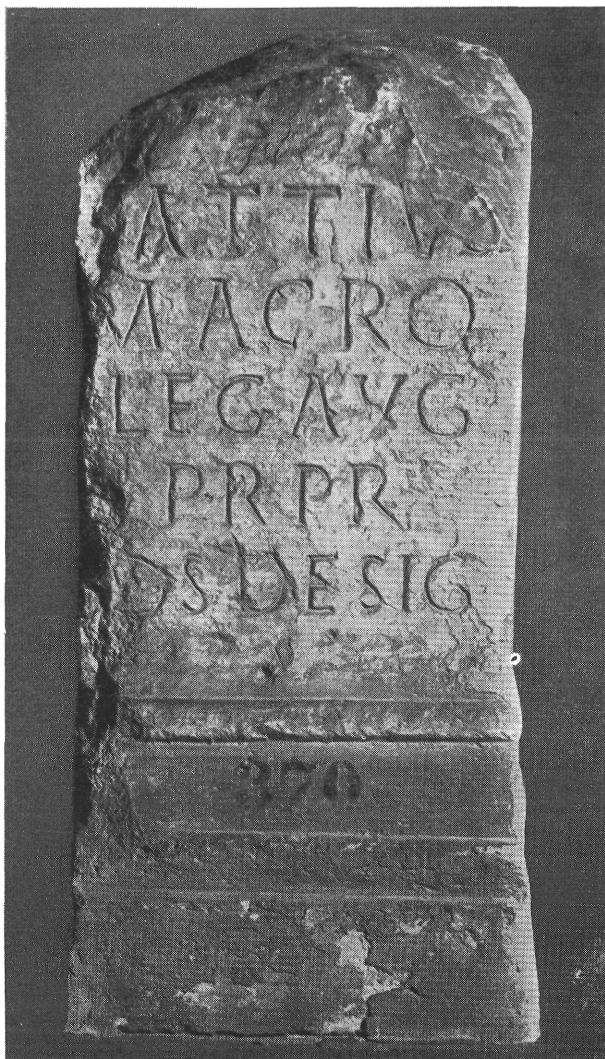 ATTIVS
MACRO
LEG AVG
PR PR
OS DESIG
370